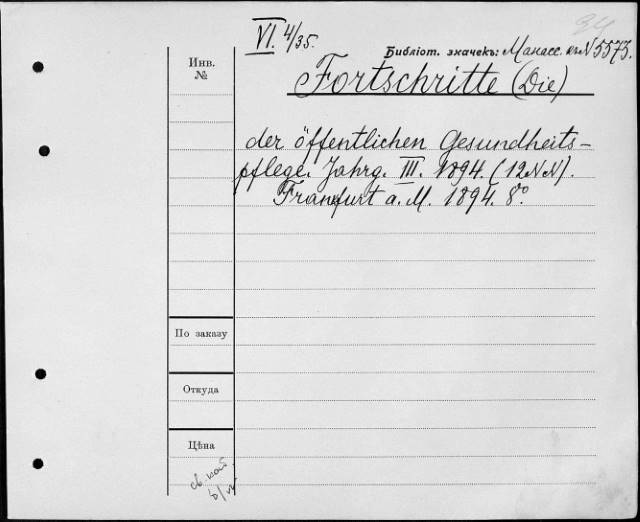 34
VI. 4/35.
Библіот. значекъ: Манасс. кн. N 5573.
Инв.
№
Fortschritte (Die)
der öffentlichen Gesundheits-
pflege. Jahrg. III. 1894. (12 NN).
Frankfurt a. M. 1894. 8°.
По заказу
Откуда
Цѣна